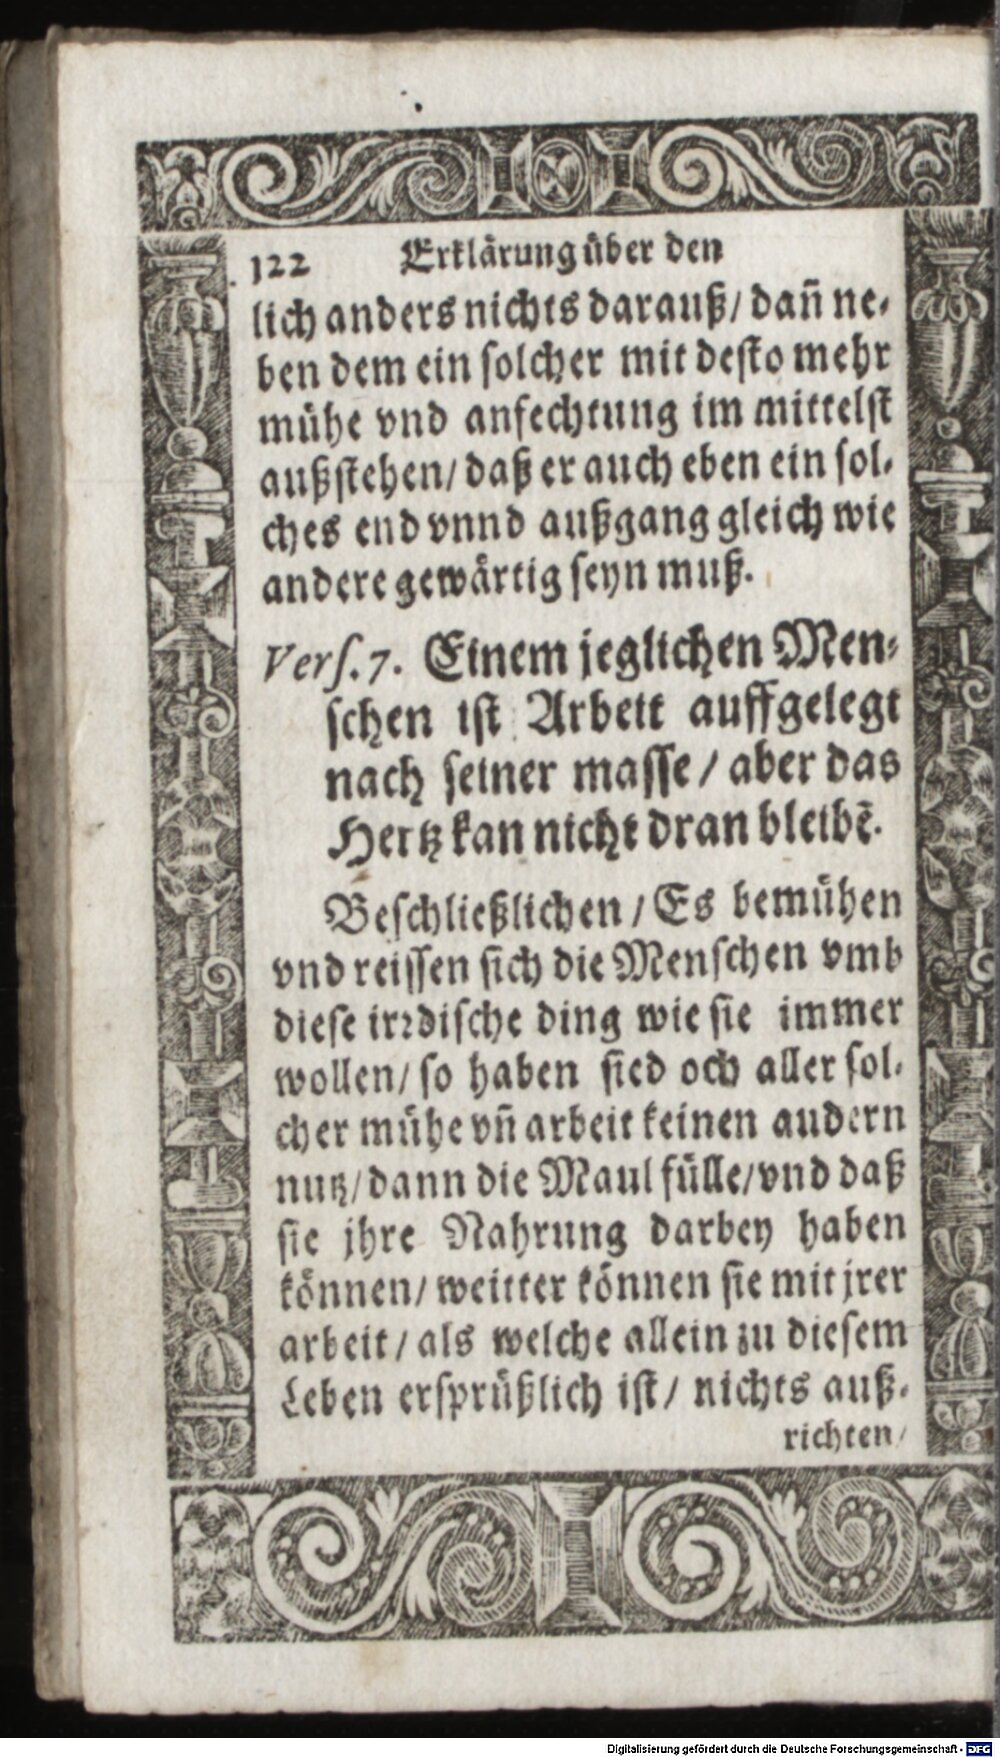 122 Erklärung über den
lich anders nichts darauß/ dañ ne-
ben dem ein solcher mit desto mehr
mühe vnd anfechtung im mittelst
außstehen/ daß er auch eben ein sol-
ches end vnnd außgang gleich wie
andere gewärtig seyn muß.
Vers. 7. Einem jeglichen Men-
schen ist Arbeit auffgelegt
nach seiner masse / aber das
Hertz kan nicht dran bleibẽ.
Beschließlichen / Es bemühen
vnd reissen sich die Menschen vmb
diese irrdische ding wie sie immer
wollen/ so haben sied och aller sol-
cher mühe vñ arbeit keinen andern
nutz/ dann die Maul fülle/ vnd daß
sie jhre Nahrung darbey haben
können/ weitter können sie mit jrer
arbeit / als welche allein zu diesem
Leben ersprüßlich ist/ nichts auß-
richten/
Digitalisierung gefördert durch die Deutsche Forschungsgemeinschaft - DFG